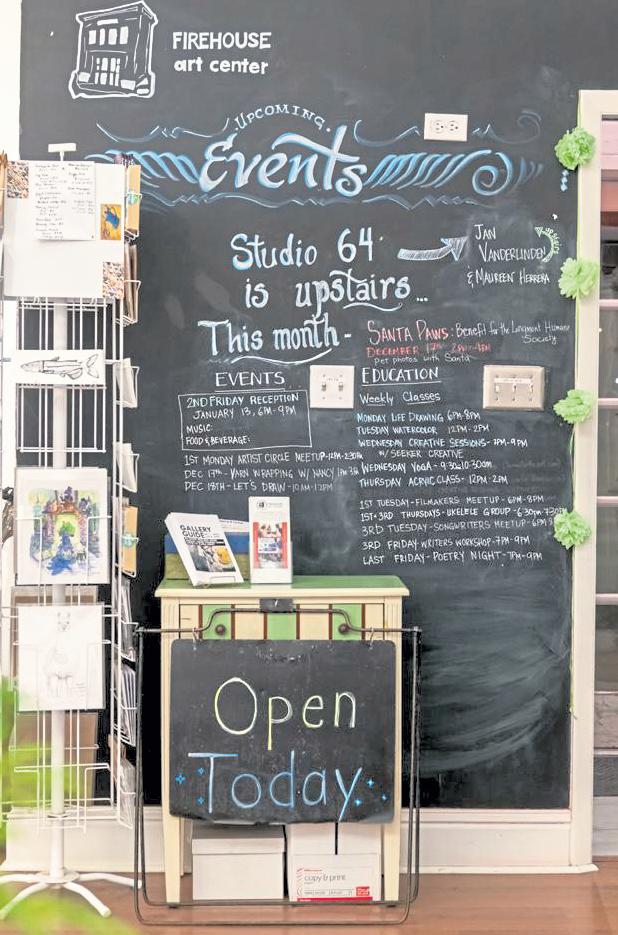 FIREHOUSE
art center
UPCOMING
Events
Studio 64
is upstairs...
JAN
VANDERLINDEN
& MAUREEN HERRERA
UPSTAIRS
This month -
SANTA PAWS: Benefit for the Longmont Humane
Society
DECEMBER 17th 2PM-4PM
Pet photos with Santa
EVENTS
2ND FRIDAY RECEPTION
JANUARY 13, 6PM-9PM
MUSIC:
FOOD & BEVERAGE:
1ST MONDAY ARTIST CIRCLE MEETUP-12PM-2:30PM
DEC 17th - YARN WRAPPING W/ NANCY
DEC 18TH - LET'S DRAW - 10AM-12PM
EDUCATION
Weekly Classes
MONDAY LIFE DRAWING 6PM-8PM
TUESDAY WATERCOLOR 12PM-2PM
WEDNESDAY CREATIVE SESSIONS-7PM-9PM
W/ SEEKER CREATIVE
WEDNESDAY YOGA - 9:30 to 10:30am
THURSDAY ACRYLIC CLASS - 12PM-2PM
1ST TUESDAY-FILMAKERS MEETUP - 6PM-8PM
1ST & 3RD THURSDAYS - UKELELE GROUP - 6:30pm-7:30pm
3RD TUESDAY-SONGWRITERS MEETUP - 6PM
3RD FRIDAY-WRITERS WORKSHOP-7PM-9PM
LAST FRIDAY - POETRY NIGHT-7PM-9PM
GALLERY
GUIDE
Open
Today
copy & print